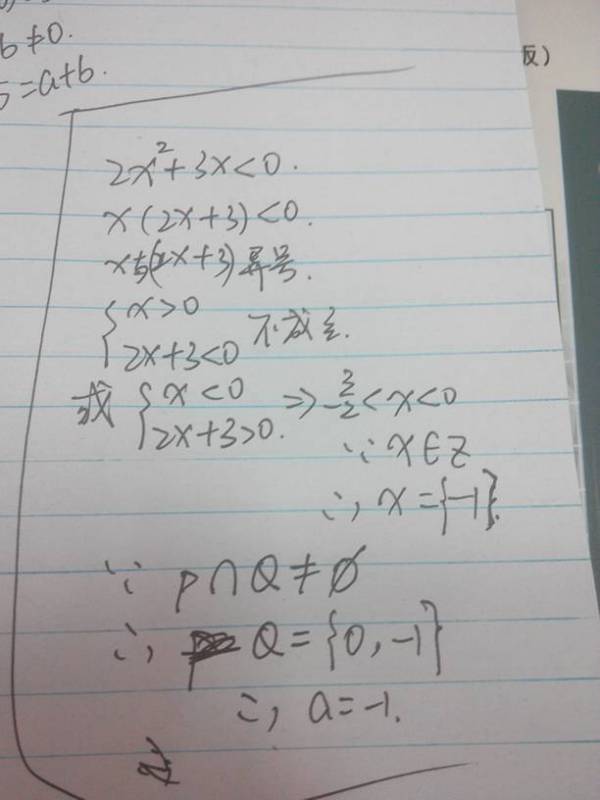 b≠0.
5=a+b.
反)
2x²+3x<0.
x(2x+3)<0.
x与(2x+3)异号.
{x>0
2x+3<0 不成立.
或 {x<0
2x+3>0. ⇒ -3/2<x<0
∵ x∈Z
∴, x={-1}.
∵ P∩Q≠∅
∴, Q={0,-1}
∴, a=-1.